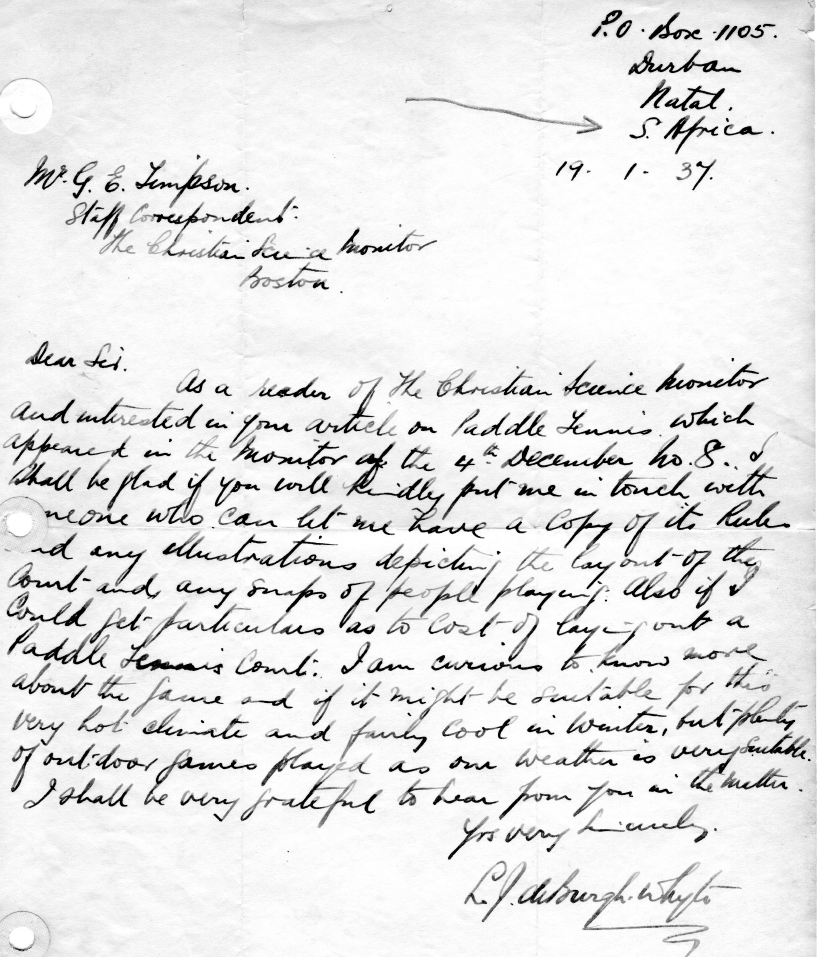 P.O. Box 1105.
Durban
Natal.
S. Africa.
19. 1. 37.
Mr. G. E. Timpson.
Staff Correspondent.
The Christian Science Monitor
Boston.
Dear Sir.
As a reader of The Christian Science Monitor
and interested in your article on Paddle Tennis which
appeared in the Monitor of the 4th December No. 8. I
shall be glad if you will kindly put me in touch with
meone who can let me have a copy of its Rules
nd any illustrations depicting the layout of the
Court and any snaps of people playing. Also if I
could get particulars as to cost of laying out a
Paddle Tennis Court. I am curious to know more
about the game and if it might be suitable for this
very hot climate and fairly cool in winter, but plenty
of outdoor games played as our weather is very suitable.
I shall be very grateful to hear from you in the matter.
Yrs very sincerely.
L. J. de Burgh-Whyte